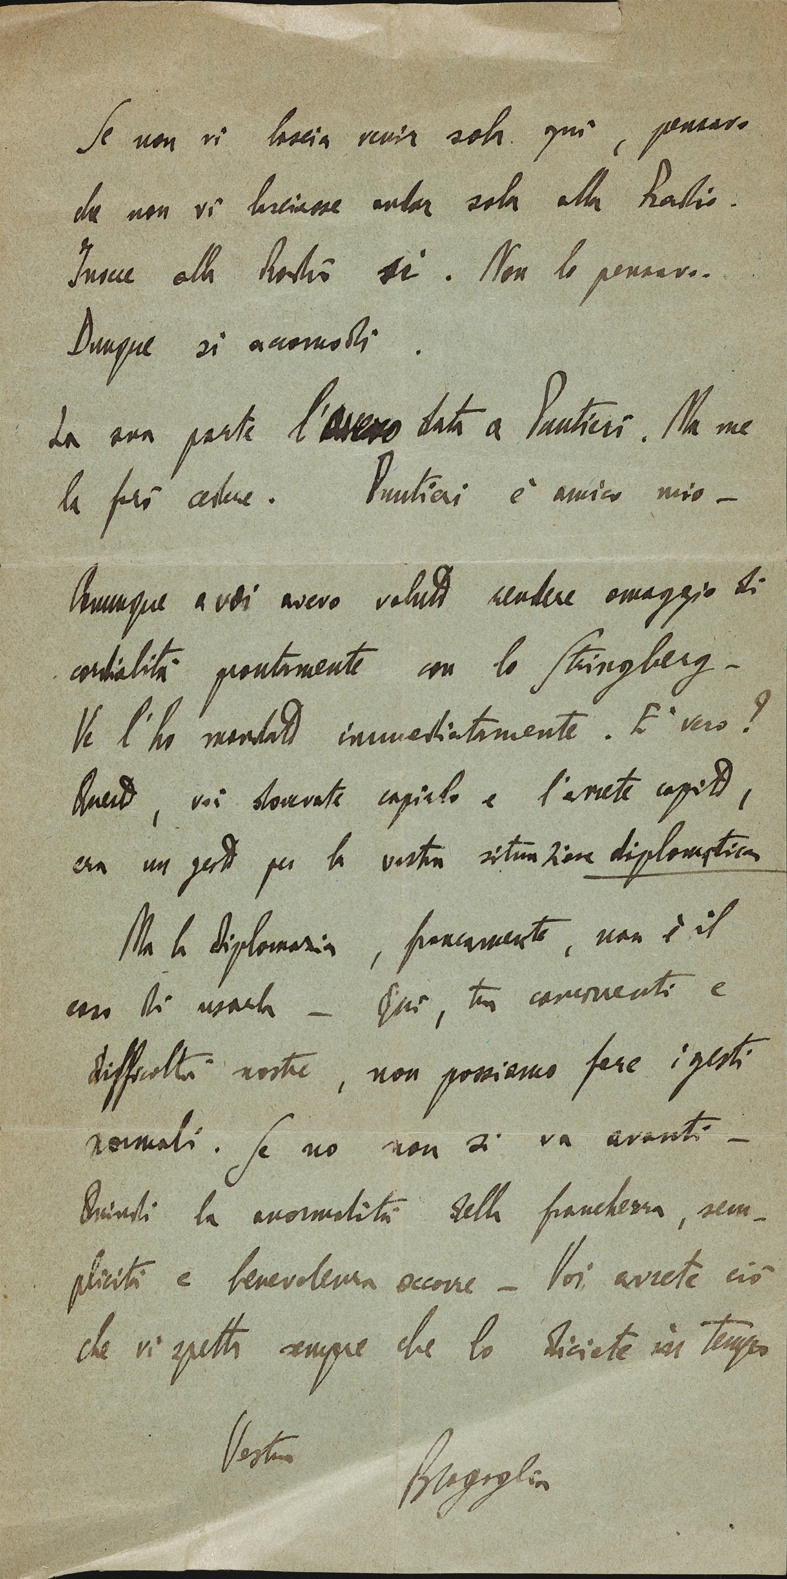 Se non vi lascia venir sola qui, pensavo
che non vi lasciasse andar sola alla Radio.
Invece alla Radio sì. Non lo pensavo.
Dunque si accomodi.
La sua parte l'avevo data a Puntieri. Ma me
la farò cedere. Puntieri è amico mio –
Comunque a voi avevo voluto rendere omaggio di
cordialità prontamente con lo Stringberg –
Ve l'ho mandato immediatamente. È vero?
Questo, voi dovevate capirlo e l'avrete capito,
era un gesto per la vostra situazione diplomatica
Ma la diplomazia, francamente, non è il
caso di usarla – Qui, tra concorrenti e
difficoltà nostre, non possiamo fare i gesti
normali. Se no non si va avanti –
Quindi la anormalità della franchezza, sem-
plicità e benevolenza occorre – Voi avrete ciò
che vi spetta sempre che lo diciate in tempo
Vostro
Bragaglia